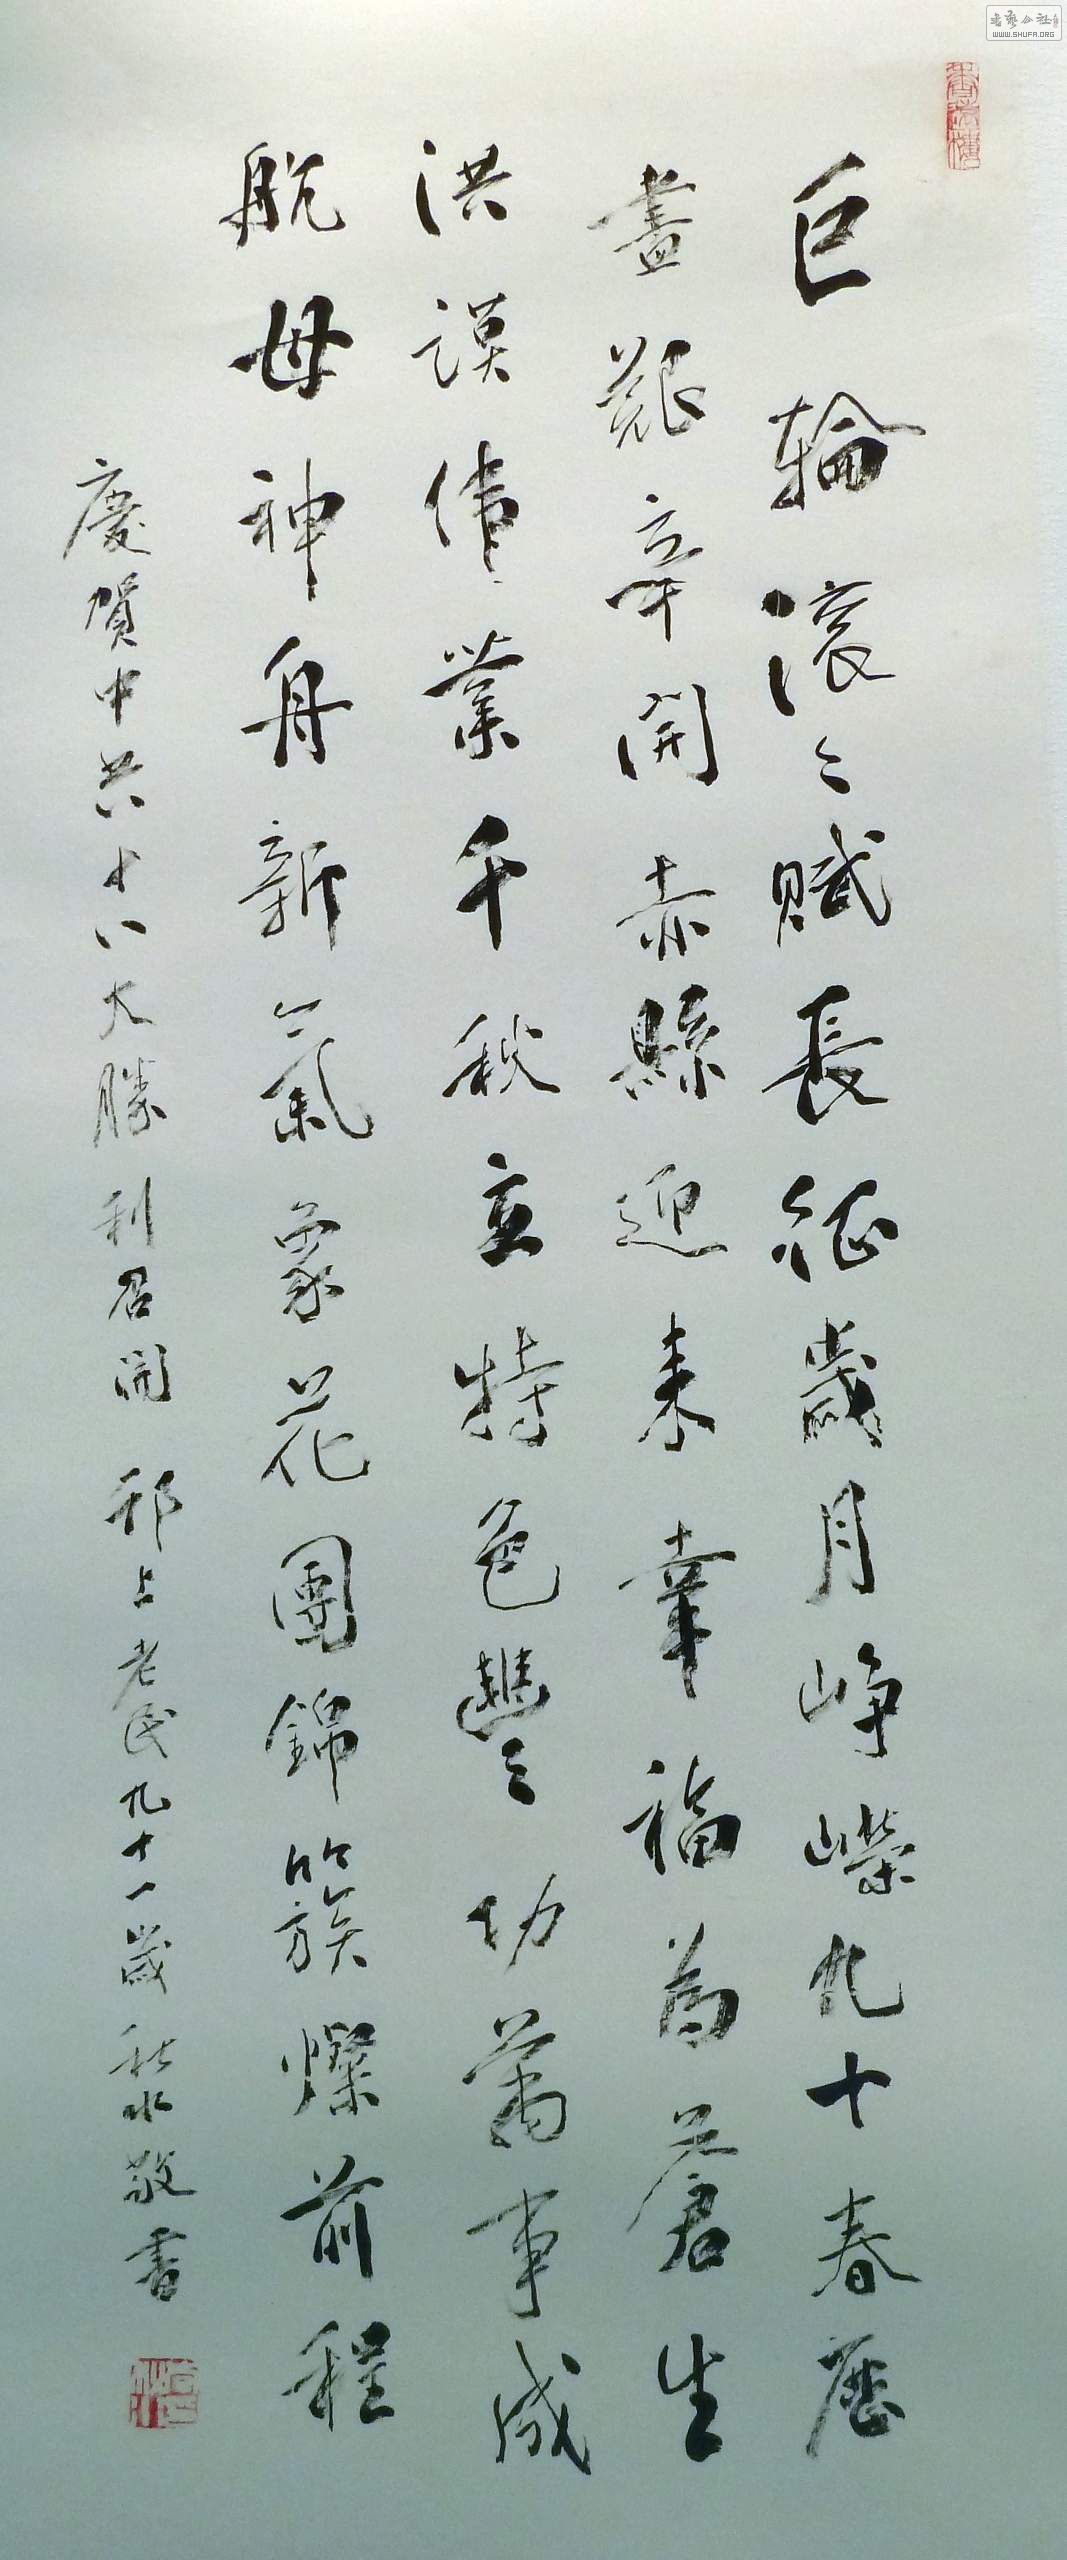 巨輪滾々賦長征歲月崢嶸九十春歷
盡艱辛開赤縣迎來幸福為蒼生
洪謨偉業千秋立特色豐々功萬事成
航母神舟新氣象花團錦簇燦前程
慶賀中共十八大勝利召開 邗上老民九十一歲秋水敬書
書藝公社
WWW.SHUFA.ORG